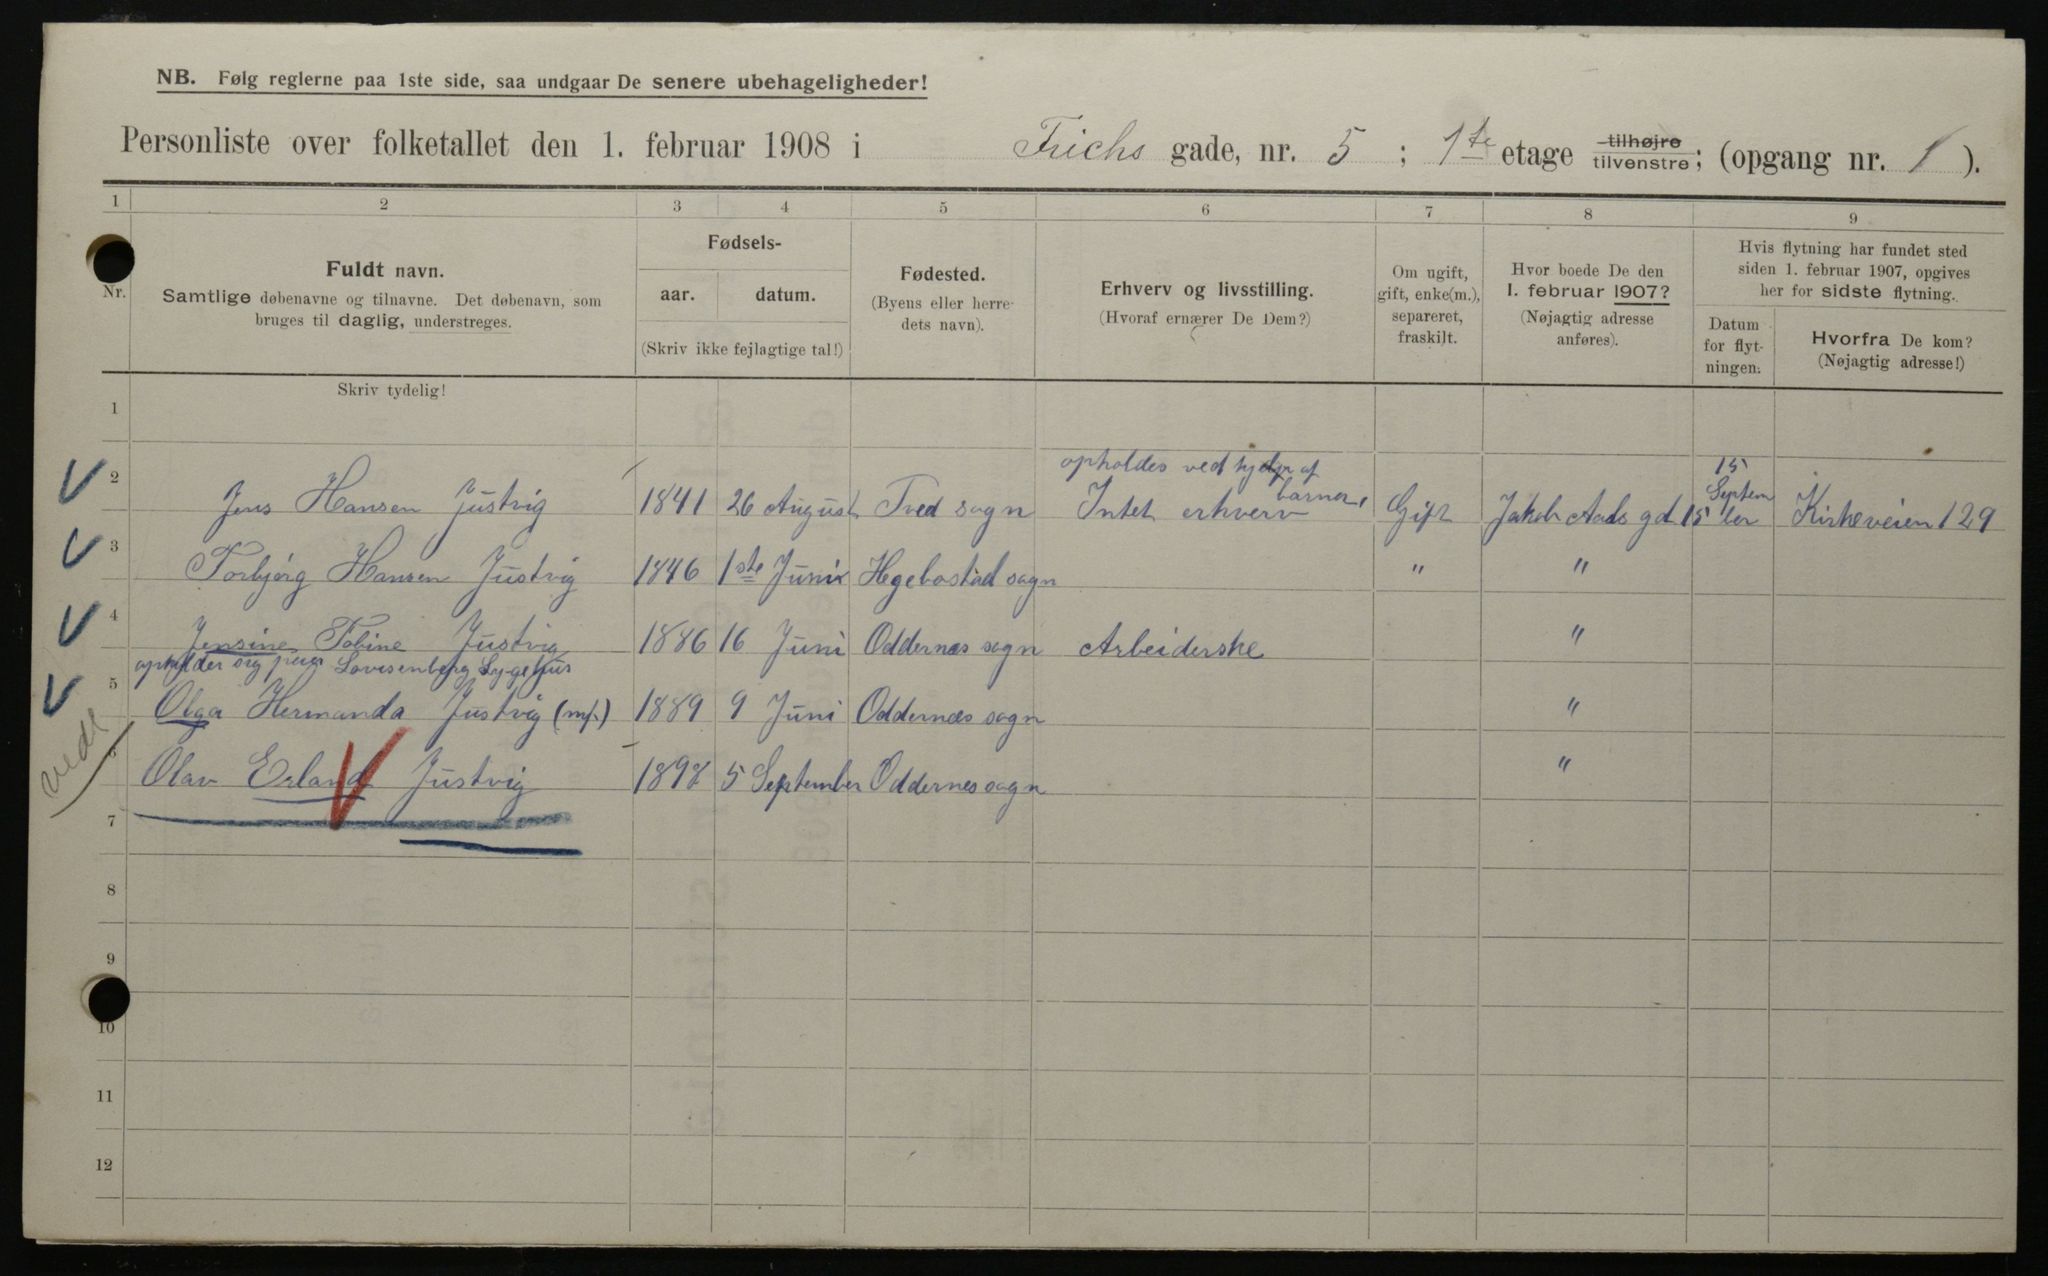 NB. Følg reglerne paa 1ste side, saa undgaar De senere ubehageligheder!
Personliste over folketallet den 1. februar 1908 i Frichs gade, nr. 5 ; 1ste etage tilhøjre tilvenstre; (opgang nr. 1 ).
1 2 3 4 5 6 7 8 9
Nr.
Fuldt navn.
Samtlige døbenavne og tilnavne. Det døbenavn, som
bruges til daglig, understreges.
Fødsels-
aar. datum.
(Skriv ikke fejlagtige tal!)
Fødested.
(Byens eller herre-
dets navn).
Erhverv og livsstilling.
(Hvoraf ernærer De Dem?)
Om ugift,
gift, enke(m.),
separeret,
fraskilt.
Hvor boede De den
1. februar 1907?
(Nøjagtig adresse
anføres).
Hvis flytning har fundet sted
siden 1. februar 1907, opgives
her for sidste flytning.
Datum
for flyt-
ningen.
Hvorfra De kom?
(Nøjagtig adresse!)
Skriv tydelig!
1
opholdes ved hjelp af barner
2 Jens Hansen Justvig 1841 26 August Tved sogn Intet erhverv Gift Jakob Aals gd 15 15 September Kirkeveien 129
3 Torbjørg Hansen Justvig 1846 1ste Juni Hegebostad sogn " "
4 Jensine Tobine Justvig 1886 16 Juni Oddernes sogn Arbeiderske "
opholder sig paa Lovisenberg Sygehus
5 Olga Hermanda Justvig (mf.) 1889 9 Juni Oddernes sogn "
6 Olav Erland Justvig 1898 5 September Oddernes sogn "
7
8
9
10
11
12